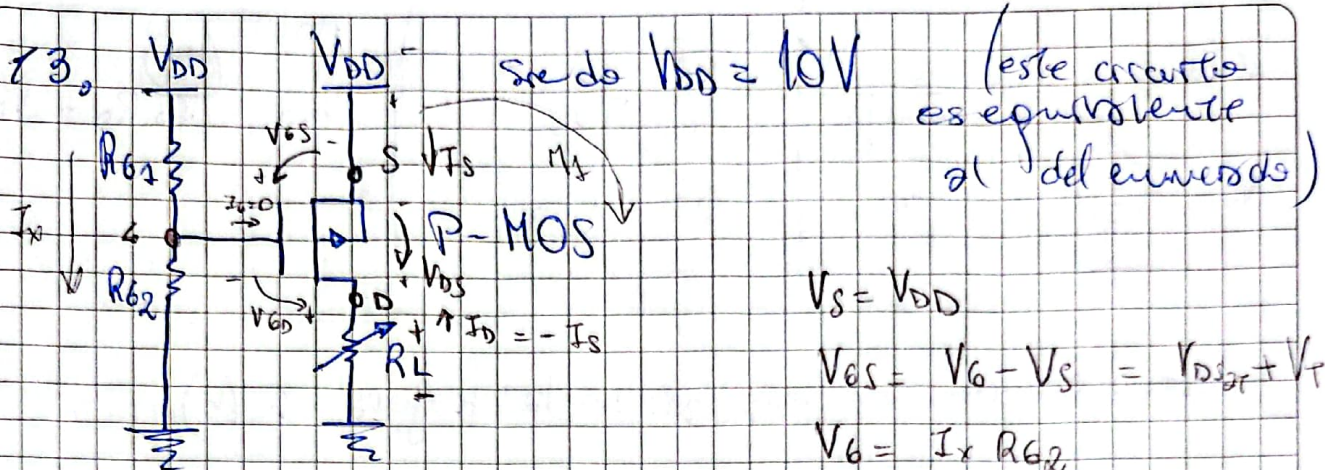 13.
V_DD
V_DD
siendo V_DD = 10V
(este circuito
es equivalente
al del enunciado)
R_G1
V_GS
-
+
S
I_S
M_1
I_G=0
I_x
G
P-MOS
R_G2
V_DS
V_GD
-
+
D
I_D = - I_S
R_L
+
-
V_S = V_DD
V_GS = V_G - V_S = V_DSat + V_T
V_G = I_x R_G2